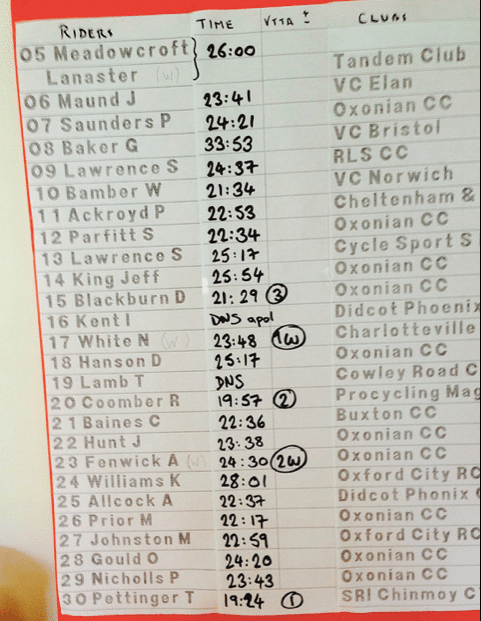 RIDERS TIME VTTA ± CLUBS
05 Meadowcroft } 26:00 Tandem Club
Lanaster (w)
06 Maund J 23:41 VC Elan
07 Saunders P 24:21 Oxonian CC
08 Baker G 33:53 VC Bristol
09 Lawrence S 24:37 RLS CC
10 Bamber W 21:34 VC Norwich
11 Ackroyd P 22:53 Cheltenham &
12 Parfitt S 22:34 Oxonian CC
13 Lawrence S 25:17 Cycle Sport S
14 King Jeff 25:54 Oxonian CC
15 Blackburn D 21:29 3 Oxonian CC
16 Kent I DNS apol Didcot Phoenix
17 White N (w) 23:48 1W Charlotteville
18 Hanson D 25:17 Oxonian CC
19 Lamb T DNS Cowley Road C
20 Coomber R 19:57 2 Procycling Mag
21 Baines C 22:36 Buxton CC
22 Hunt J 23:38 Oxonian CC
23 Fenwick A (w) 24:30 2W Oxonian CC
24 Williams K 28:01 Oxford City RC
25 Allcock A 22:37 Didcot Phonix
26 Prior M 22:17 Oxonian CC
27 Johnston M 22:59 Oxford City RC
28 Gould O 24:20 Oxonian CC
29 Nicholls P 23:43 Oxonian CC
30 Pettinger T 19:24 1 SRI Chinmoy C